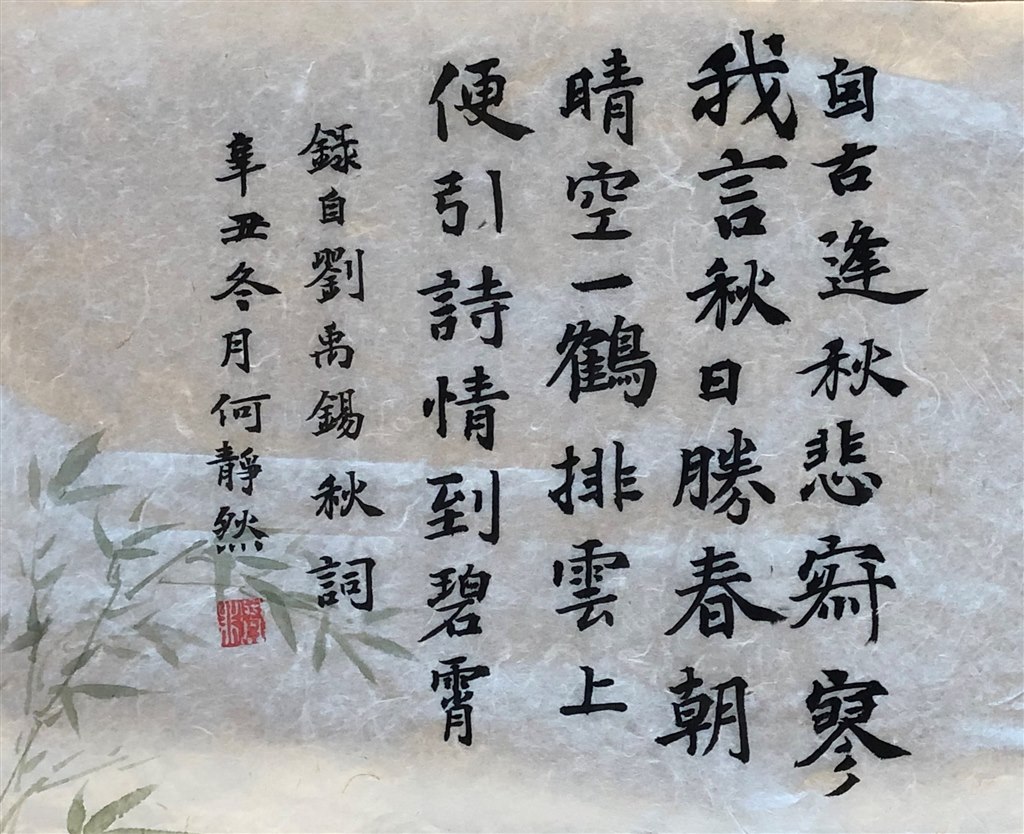 自古逢秋悲寂寥
我言秋日勝春朝
晴空一鶴排雲上
便引詩情到碧霄
錄自劉禹錫秋詞
辛丑冬月何靜然